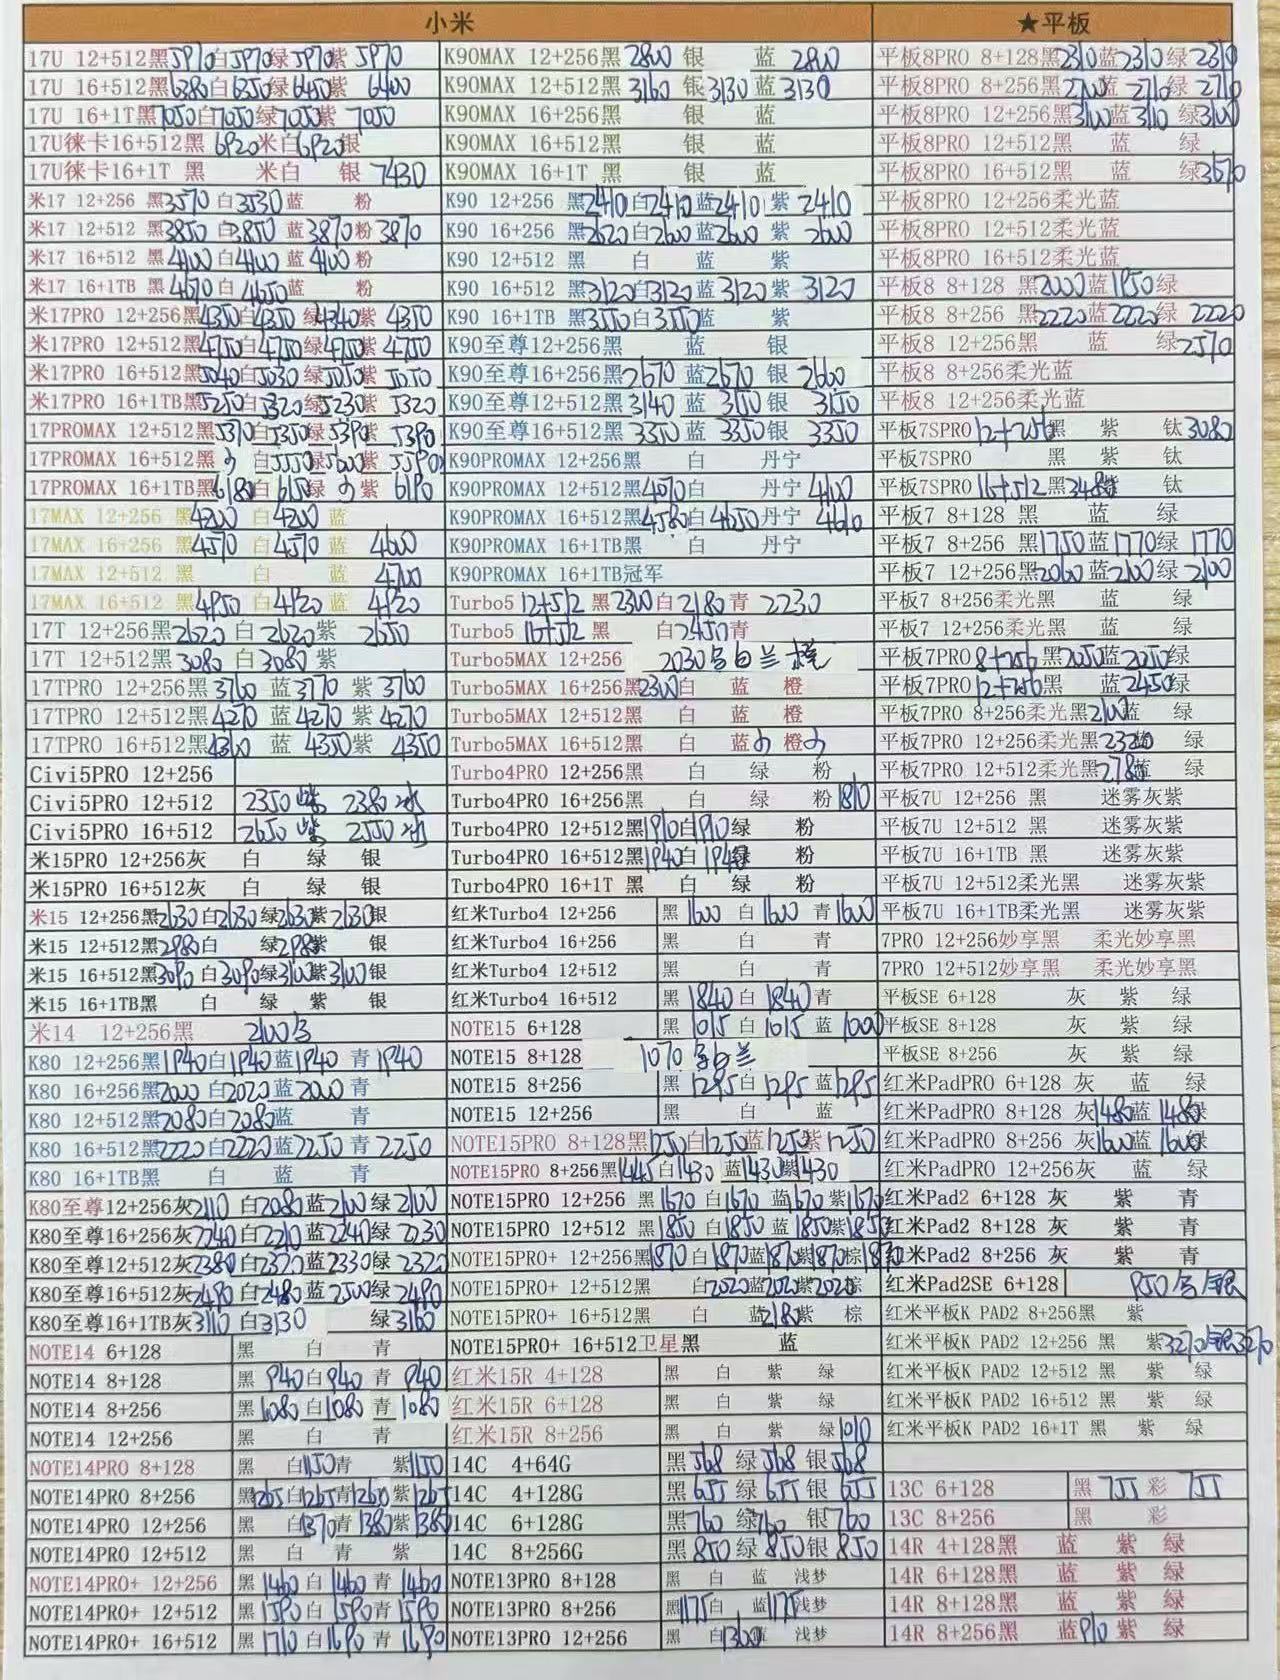 小米
17U 12+512黑5970白5970绿5970紫 5970
17U 16+512黑6380白6350绿6450紫 6400
17U 16+1T黑7050白7050绿7050紫 7050
17U徕卡16+512黑 6920米白6920银
17U徕卡16+1T 黑 米白 银 7430
米17 12+256 黑3570 白3530蓝 粉
米17 12+512 黑3850 白3850 蓝3870粉3870
米17 16+512 黑4100 白4100 蓝4100粉
米17 16+1TB 黑4670白4650蓝 粉
米17PRO 12+256黑4350白4350 绿4340紫 4350
米17PRO 12+512黑4750白4750绿4750紫 4750
米17PRO 16+512黑5040白5030 绿5050紫 5050
米17PRO 16+1TB黑5250白5320绿5230紫 5320
17PROMAX 12+512黑5370白5350绿5390紫 5390
17PROMAX 16+512黑 白5550绿5600紫 5590
17PROMAX 16+1TB黑6180白 6150绿 紫 6190
17MAX 12+256 黑4200 白4200 蓝
17MAX 16+256 黑4570 白4570 蓝 4600
17MAX 12+512 黑 白 蓝 4700
17MAX 16+512 黑4950 白4920 蓝 4920
17T 12+256黑2620 白 2620紫 2650
17T 12+512黑3080 白3080紫
17TPRO 12+256黑3760 蓝3770 紫 3760
17TPRO 12+512黑4270 蓝4270 紫 4270
17TPRO 16+512黑4360 蓝 4350紫 4350
Civi5PRO 12+256
Civi5PRO 12+512 2350紫 2380冰
Civi5PRO 16+512 2650紫 2550冰
米15PRO 12+256灰 白 绿 银
米15PRO 16+512灰 白 绿 银
米15 12+256黑2630白2630绿2630紫2630银
米15 12+512黑2980白 绿2980紫 银
米15 16+512黑3090 白3090绿3100紫3100银
米15 16+1TB黑 白 绿 紫 银
米14 12+256黑 2100
K80 12+256黑1940白1940蓝1940 青1940
K80 16+256黑2000 白2020蓝2000青
K80 12+512黑2080白2080蓝 青
K80 16+512黑2220白2220蓝2250青2250
K80 16+1TB黑 白 蓝 青
K80至尊12+256灰2110 白2080蓝2100绿2100
K80至尊16+256灰2240白2210蓝2240绿2230
K80至尊12+512灰2380白2320蓝2330绿2320
K80至尊16+512灰2490白2480蓝2500绿2490
K80至尊16+1TB灰3110白3130 绿3160
NOTE14 6+128 黑 白 青
NOTE14 8+128 黑 940白940 青 940
NOTE14 8+256 黑1080白1080 青 1080
NOTE14 12+256 黑 白 青
NOTE14PRO 8+128 黑 白1150青 紫1150
NOTE14PRO 8+256 黑1265白1265青1260紫1265
NOTE14PRO 12+256 黑 白1370青1380紫1385
NOTE14PRO 12+512 黑 白 青 紫
NOTE14PRO+ 12+256 黑1460白1460青1460
NOTE14PRO+ 12+512 黑1590白1590青1590
NOTE14PRO+ 16+512 黑1710白1690青1690
K90MAX 12+256黑2800 银 蓝 2800
K90MAX 12+512黑3160 银3130蓝3130
K90MAX 16+256黑 银 蓝
K90MAX 16+512黑 银 蓝
K90MAX 16+1T 黑 银 蓝
K90 12+256 黑2410白2410蓝2410紫 2410
K90 16+256 黑2620白2600蓝2600紫 2600
K90 12+512 黑 白 蓝 紫
K90 16+512 黑3120白3120蓝3120紫 3120
K90 16+1TB 黑3550白3550蓝 紫
K90至尊12+256黑 蓝 银
K90至尊16+256黑2670 蓝2670 银 2660
K90至尊12+512黑3140 蓝 3150银 3150
K90至尊16+512黑3350蓝 3350银 3350
K90PROMAX 12+256黑 白 丹宁
K90PROMAX 12+512黑4070白 丹宁 4100
K90PROMAX 16+512黑4580白4650丹宁 4660
K90PROMAX 16+1TB黑 白 丹宁
K90PROMAX 16+1TB冠军
Turbo5 12+512 黑2300白2180青 2230
Turbo5 16+512 黑 白2450青
Turbo5MAX 12+256 2030 白兰橙
Turbo5MAX 16+256黑2300白 蓝 橙
Turbo5MAX 12+512黑 白 蓝 橙
Turbo5MAX 16+512黑 白 蓝 橙
Turbo4PRO 12+256黑 白 绿 粉
Turbo4PRO 16+256黑 白 绿 粉1810
Turbo4PRO 12+512黑1910白1910绿 粉
Turbo4PRO 16+512黑1940白1940绿 粉
Turbo4PRO 16+1T 黑 白 绿 粉
红米Turbo4 12+256 黑 1600 白1600 青1600
红米Turbo4 16+256 黑 白 青
红米Turbo4 12+512 黑 白 青
红米Turbo4 16+512 黑 1840白 1840青
NOTE15 6+128 黑 1015白 1015蓝 1000
NOTE15 8+128 1070 白兰
NOTE15 8+256 黑 1295白1295蓝1295
NOTE15 12+256 黑 白 蓝
NOTE15PRO 8+128黑1250白1250蓝1250紫1250
NOTE15PRO 8+256黑1445白1430 蓝1430紫1430
NOTE15PRO 12+256 黑1670 白1670 蓝1670紫1670
NOTE15PRO 12+512 黑1850 白1850 蓝1850紫1850
NOTE15PRO+ 12+256黑1870白1870蓝1870紫1870棕1870
NOTE15PRO+ 12+512黑 白2020蓝2020紫2020棕
NOTE15PRO+ 16+512黑 白 蓝2180紫 棕
NOTE15PRO+ 16+512卫星黑 蓝
红米15R 4+128 黑 白 紫 绿
红米15R 6+128 黑 白 紫 绿
红米15R 8+256 黑 白 紫 绿1010
14C 4+64G 黑568 绿568 银568
14C 4+128G 黑655 绿655银 655
14C 6+128G 黑760 绿760 银760
14C 8+256G 黑850绿850银850
NOTE13PRO 8+128 黑 白 蓝 浅梦
NOTE13PRO 8+256 黑1175白 蓝1175浅梦
NOTE13PRO 12+256 黑 白1300蓝 浅梦
★平板
平板8PRO 8+128黑2310蓝2310绿 2310
平板8PRO 8+256黑2700蓝 2710绿 2710
平板8PRO 12+256黑3100蓝3110 绿3100
平板8PRO 12+512黑 蓝 绿
平板8PRO 16+512黑 蓝 绿3570
平板8PRO 12+256柔光蓝
平板8PRO 12+512柔光蓝
平板8PRO 16+512柔光蓝
平板8 8+128 黑2000蓝1950绿
平板8 8+256 黑2220蓝2220绿 2220
平板8 12+256黑 蓝 绿2570
平板8 8+256柔光蓝
平板8 12+256柔光蓝
平板7SPRO 12+256黑 紫 钛3080
平板7SPRO 黑 紫 钛
平板7SPRO 16+512黑3480紫 钛
平板7 8+128 黑 蓝 绿
平板7 8+256 黑1750蓝1770绿 1770
平板7 12+256黑2060蓝2100绿2100
平板7 8+256柔光黑 蓝 绿
平板7 12+256柔光黑 蓝 绿
平板7PRO 8+256黑2050蓝2050绿
平板7PRO 12+256黑 蓝2450绿
平板7PRO 8+256柔光黑2100蓝 绿
平板7PRO 12+256柔光黑2320蓝 绿
平板7PRO 12+512柔光黑2780蓝 绿
平板7U 12+256 黑 迷雾灰紫
平板7U 12+512 黑 迷雾灰紫
平板7U 16+1TB 黑 迷雾灰紫
平板7U 12+512柔光黑 迷雾灰紫
平板7U 16+1TB柔光黑 迷雾灰紫
7PRO 12+256妙享黑 柔光妙享黑
7PRO 12+512妙享黑 柔光妙享黑
平板SE 6+128 灰 紫 绿
平板SE 8+128 灰 紫 绿
平板SE 8+256 灰 紫 绿
红米PadPRO 6+128 灰 蓝 绿
红米PadPRO 8+128 灰1480蓝 1480绿
红米PadPRO 8+256 灰1600蓝 1600绿
红米PadPRO 12+256灰 蓝 绿
红米Pad2 6+128 灰 紫 青
红米Pad2 8+128 灰 紫 青
红米Pad2 8+256 灰 紫 青
红米Pad2SE 6+128 850 银
红米平板K PAD2 8+256黑 紫
红米平板K PAD2 12+256 黑 紫3270银3270
红米平板K PAD2 12+512 黑 紫 绿
红米平板K PAD2 16+512 黑 紫 绿
红米平板K PAD2 16+1T 黑 紫 绿
13C 6+128 黑 755彩 755
13C 8+256 黑 彩
14R 4+128黑 蓝 紫 绿
14R 6+128黑 蓝 紫 绿
14R 8+128黑 蓝 紫 绿
14R 8+256黑 蓝910紫 绿